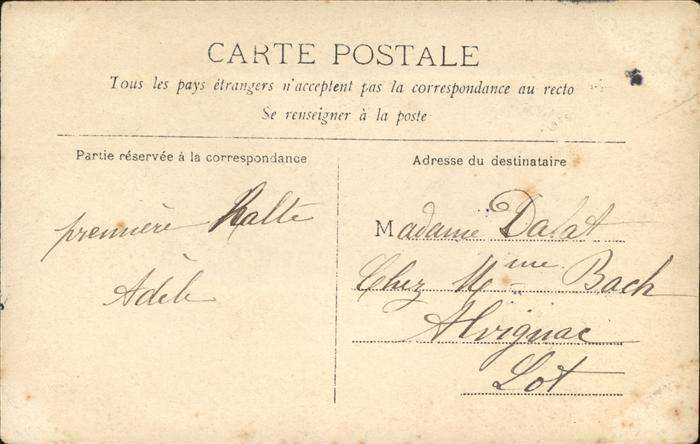 CARTE POSTALE
Tous les pays étrangers n'acceptent pas la correspondance au recto
Se renseigner à la poste
Partie réservée à la correspondance
Adresse du destinataire
première halte
Adèle
Madame Dalat
Chez Mme Bach
Alvignac
Lot